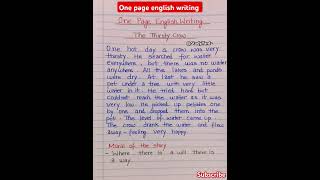 One page english writing
One Page English Writing
The Thirsty Crow
One hot day a crow was very
thirsty. He searched for water
everywhere, but there was no water
anywhere. All the lakes and ponds
were dry. At last he saw a
pot under a tree with very little
water in it. He tried hard but
couldn't reach the water as it was
very low. He picked up pebbles one
by one and dropped them into the
pot. The level of water came up.
The crow drank the water and flew
away feeling very happy.
Moral of the story
- Where there is a will there is
a way.
Subscribe